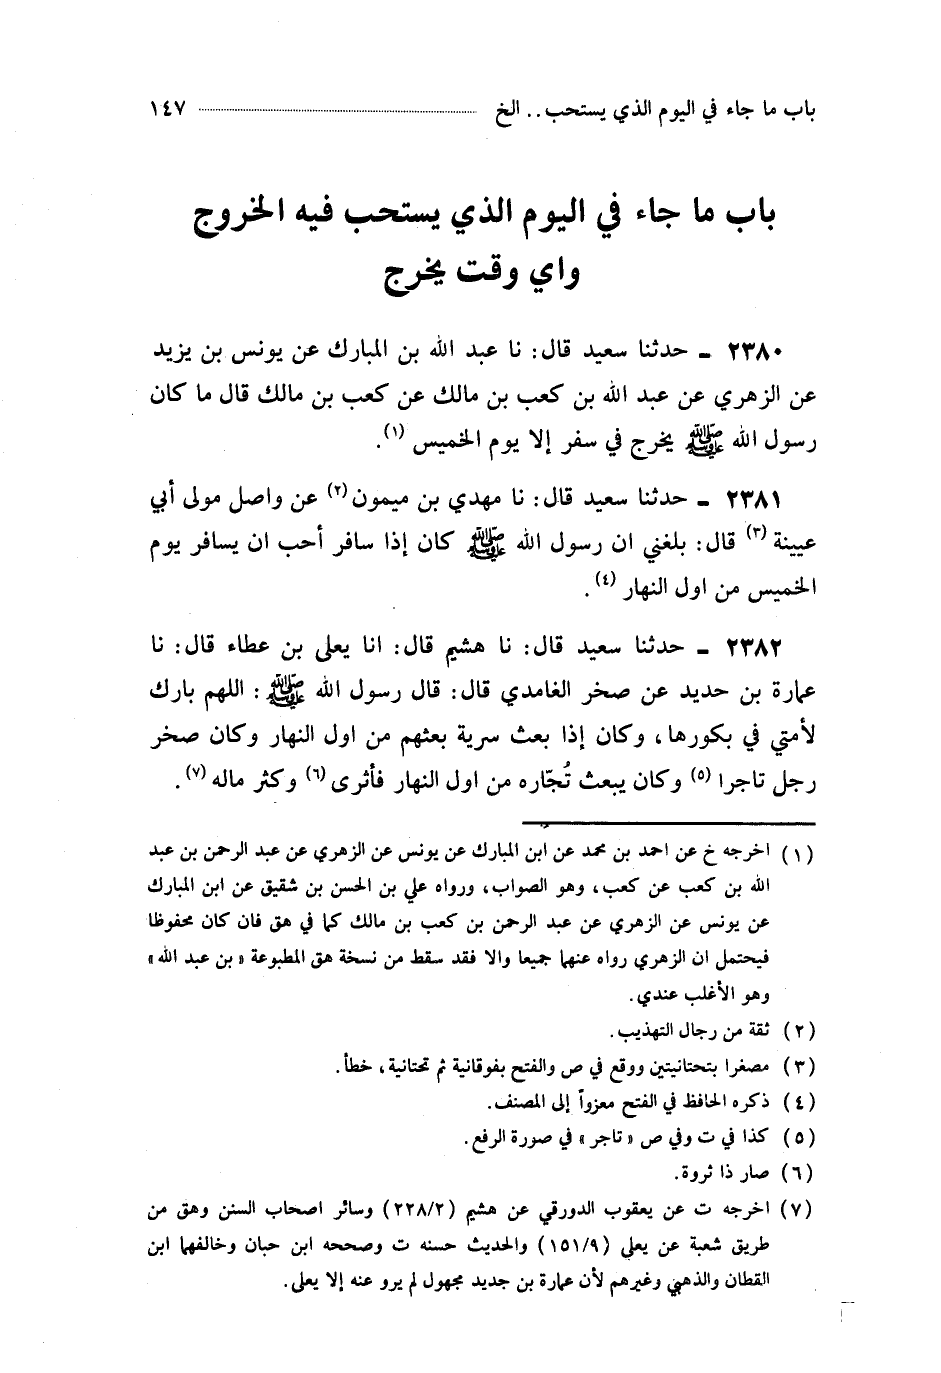 باب ما جاء في اليوم الذي يستحب .. الخ ١٤٧
باب ما جاء في اليوم الذي يستحب فيه الخروج
واي وقت يخرج
٢٣٨٠ ـ حدثنا سعيد قال: نا عبد الله بن المبارك عن يونس بن يزيد
عن الزهري عن عبد الله بن كعب بن مالك عن كعب بن مالك قال ما كان
رسول الله ﷺ يخرج في سفر إلا يوم الخميس (١).
٢٣٨١ ـ حدثنا سعيد قال: نا مهدي بن ميمون (٢) عن واصل مولى أبي
عيينة (٣) قال: بلغني ان رسول الله ﷺ كان إذا سافر أحب ان يسافر يوم
الخميس من اول النهار (٤).
٢٣٨٢ ـ حدثنا سعيد قال: نا هشيم قال: انا يعلى بن عطاء قال: نا
عمارة بن حديد عن صخر الغامدي قال: قال رسول الله ﷺ: اللهم بارك
لأمتي في بكورها، وكان إذا بعث سرية بعثهم من اول النهار وكان صخر
رجل تاجرا (٥) وكان يبعث تُجّاره من اول النهار فأثرى (٦) وكثر ماله (٧).
(١) اخرجه خ عن احمد بن محمد عن ابن المبارك عن يونس عن الزهري عن عبد الرحمن بن عبد
الله بن كعب عن كعب، وهو الصواب، ورواه علي بن الحسن بن شقيق عن ابن المبارك
عن يونس عن الزهري عن عبد الرحمن بن كعب بن مالك كما في هق فان كان محفوظا
فيحتمل ان الزهري رواه عنهما جميعا والا فقد سقط من نسخة هق المطبوعة «بن عبد الله»
وهو الأغلب عندي.
(٢) ثقة من رجال التهذيب.
(٣) مصغرا بتحتانيتين ووقع في ص والفتح بفوقانية ثم تحتانية، خطأ.
(٤) ذكره الحافظ في الفتح معزواً إلى المصنف.
(٥) كذا في ت وفي ص «تاجر» في صورة الرفع.
(٦) صار ذا ثروة.
(٧) اخرجه ت عن يعقوب الدورقي عن هشيم (٢٢٨/٢) وسائر اصحاب السنن وهق من
طريق شعبة عن يعلى (١٥١/٩) والحديث حسنه ت وصححه ابن حبان وخالفهما ابن
القطان والذهبي وغيرهم لأن عمارة بن جديد مجهول لم يرو عنه إلا يعلى.